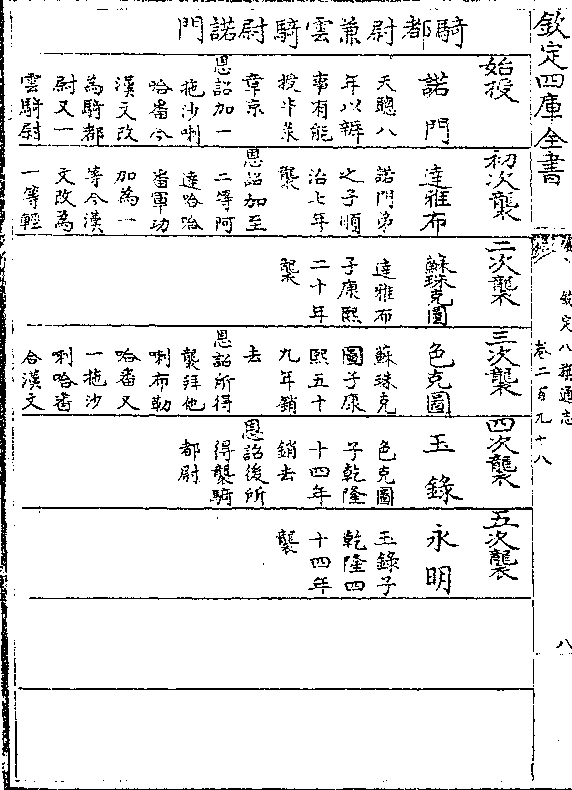 欽定四庫全書
欽定八旗通志
卷二百九十八
八
騎都尉兼雲騎尉諾門
始授
諾門
天聰八
年以辦
事有能
授牛录
章京
恩詔加一
拖沙喇
哈畨今
漢文改
為騎都
尉又一
雲騎尉
初次襲
達雅布
諾門弟
之子順
治七年
襲
恩詔加至
二等阿
達哈哈
畨軍功
加為一
等今漢
文改為
一等輕
二次襲
蘇珠克圖
達雅布
子康熙
二十年
襲
三次襲
色克圖
蘇珠克
圖子康
熙五十
九年銷
去
恩詔所得
襲拜他
喇布勒
哈畨又
一拖沙
喇哈畨
合漢文
四次襲
玉錄
色克圖
子乾隆
十四年
銷去
恩詔後所
得襲騎
都尉
五次襲
永明
玉錄子
乾隆四
十四年
襲